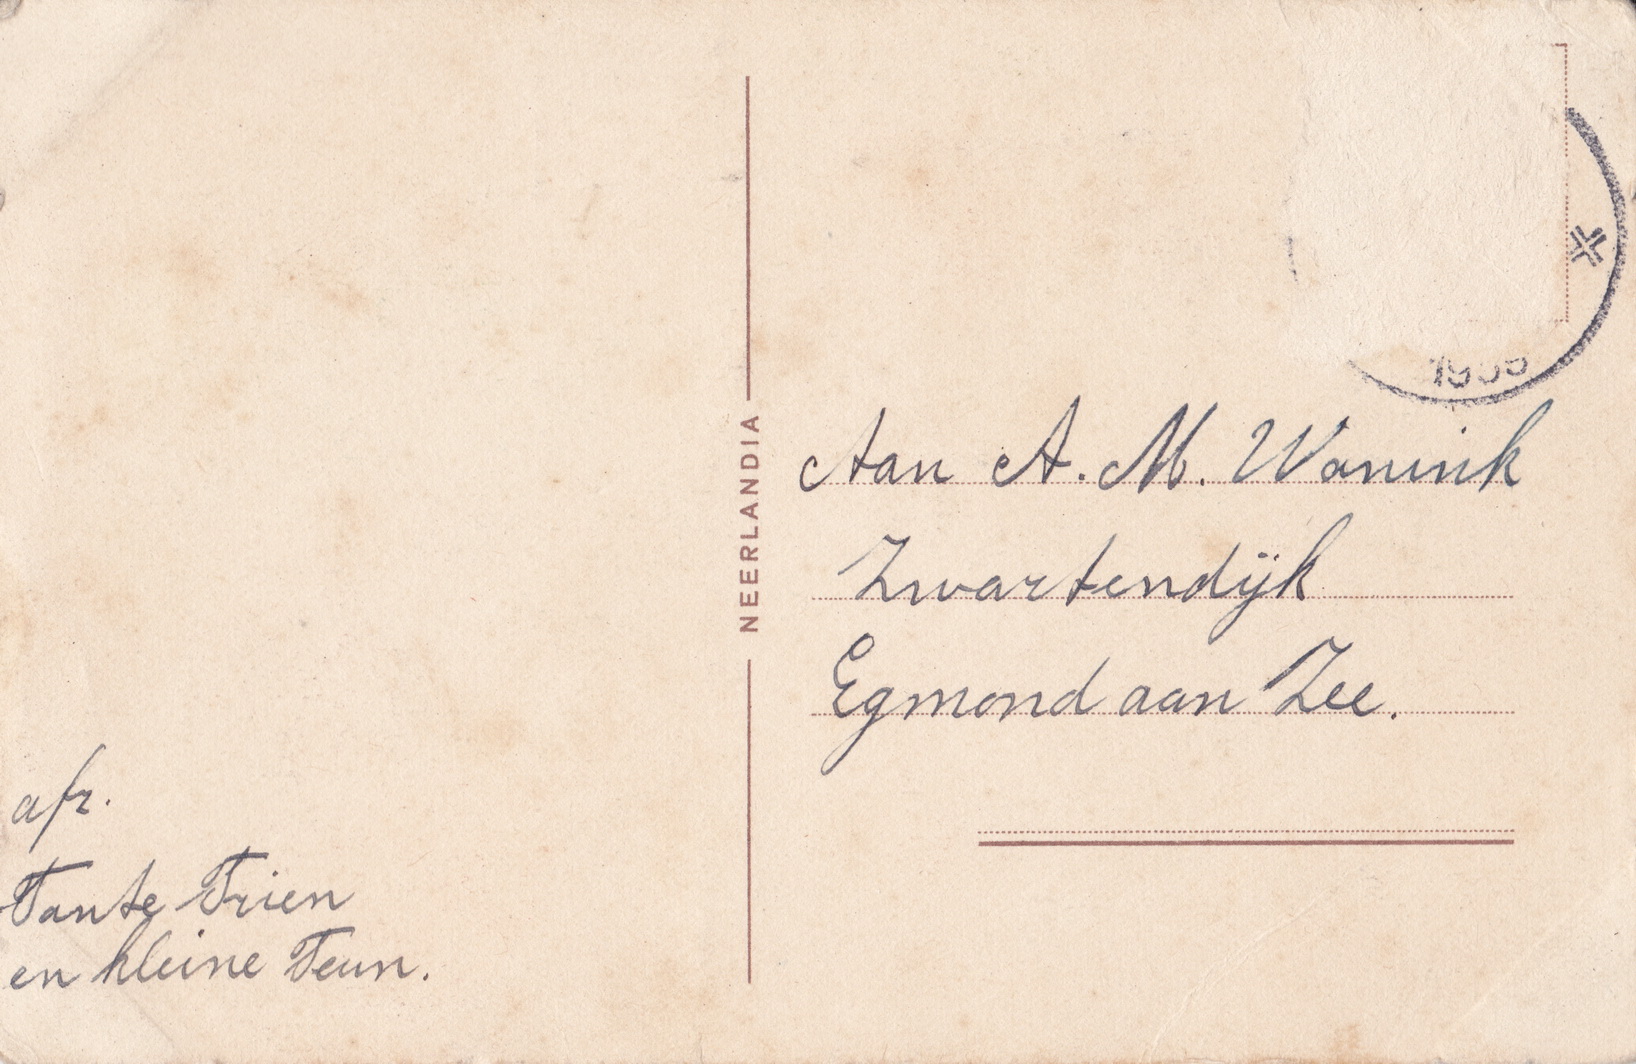 afz.
Tante Trien
en kleine Teun.
NEERLANDIA
Aan A. M. Wanink
Zwartendijk
Egmond aan Zee.